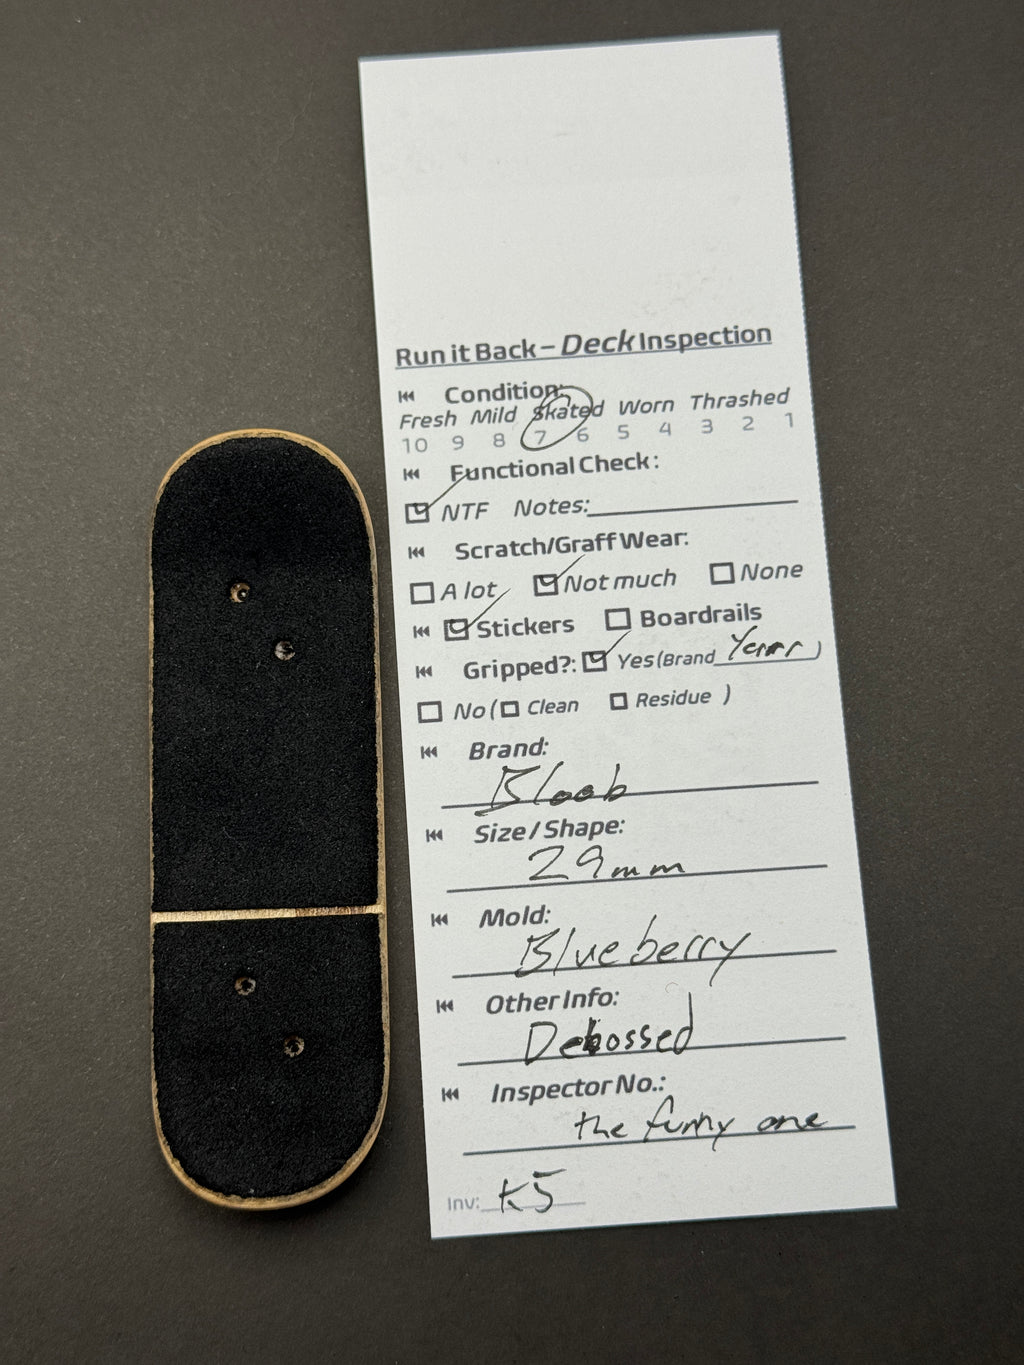 Run it Back – Deck Inspection
Condition:
Fresh Mild Skated Worn Thrashed
10 9 8 7 6 5 4 3 2 1
Functional Check:
NTF Notes:
Scratch/Graff Wear:
A lot Not much None
Stickers Boardrails
Gripped?: Yes (Brand )
No ( Clean Residue )
Brand:
Bloob
Size / Shape:
29mm
Mold:
Blueberry
Other Info:
Debossed
Inspector No.:
the funny one
Inv: K5